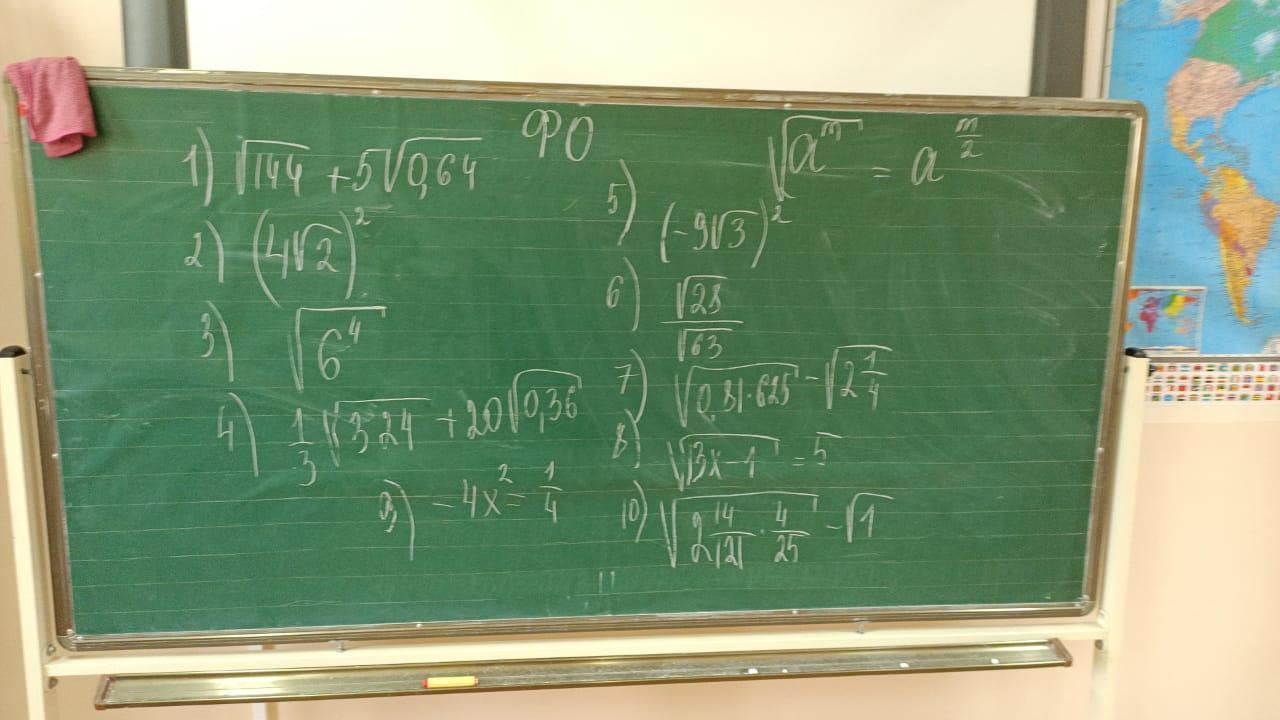 ФО
1) √144 + 5√0,64
2) (4√2)²
3) √6⁴
4) 1/3 √324 + 20√0,36
9) -4x² = 1/4
√aᵐ = a^(m/2)
5) (-9√3)²
6) √28/√63
7) √0,81·625 - √2 1/4
8) √3x-1 = 5
10) √2 14/121 · 4/25 - √1